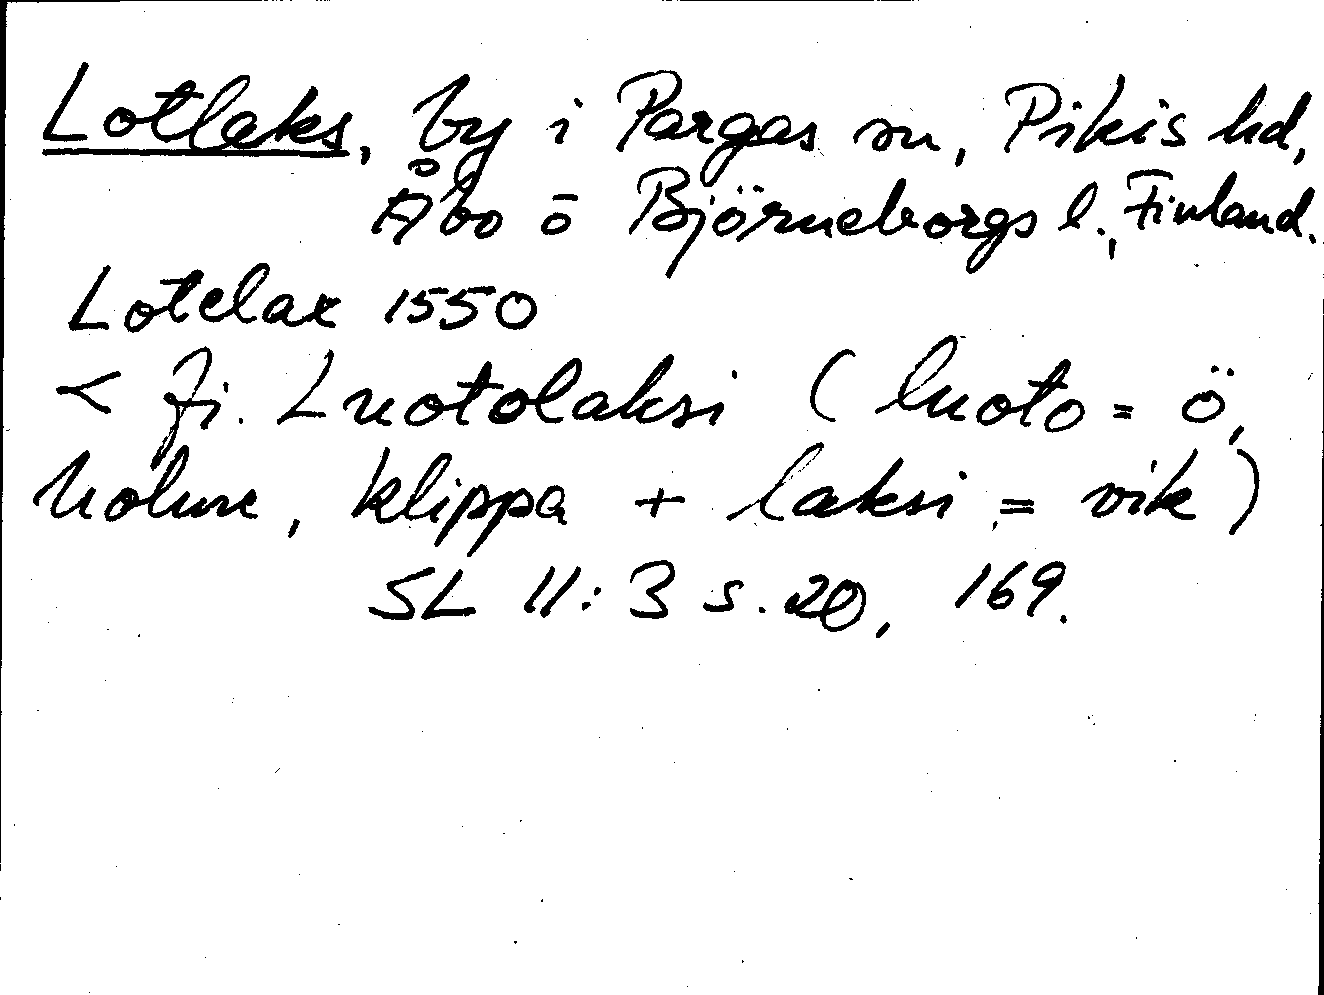 Lotlaks, by i Pargas sn, Pikis hd,
Åbo o Björneborgs l., Finland.
Lotelax 1550
< fi. Luotolaksi (luoto = ö,
holme, klippa + laksi = vik)
SL 11:3 s. 20, 169.